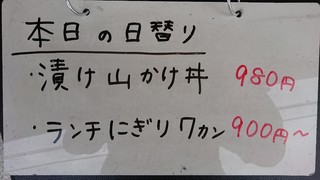 本日の日替り
・漬け山かけ丼 980円
・ランチにぎり7カン 900円~